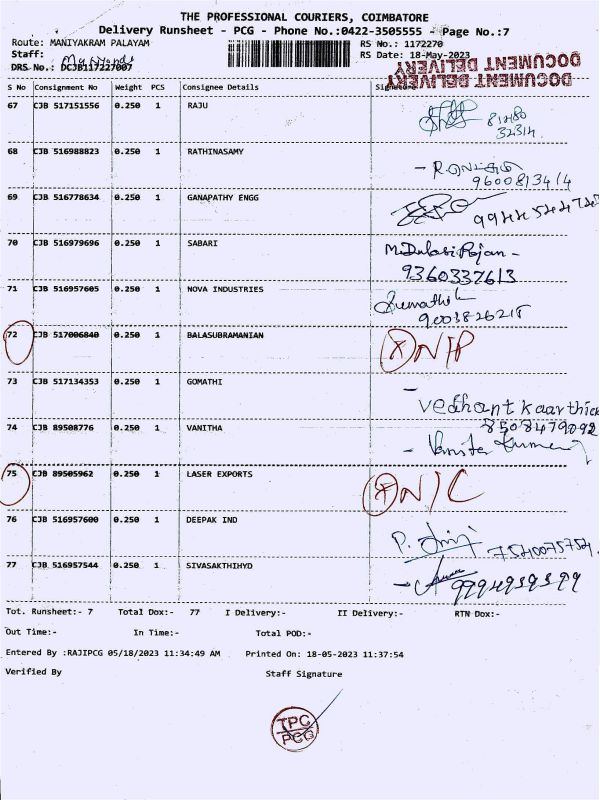 THE PROFESSIONAL COURIERS, COIMBATORE
Delivery Runsheet - PCG - Phone No.:0422-3505555 - Page No.:7
Route: MANIYAKRAM PALAYAM RS No.: 1172270
Staff: RS Date: 18-May-2023
DRS No.: DCJB117227007
DOCUMENT DELIVERY
DOCUMENT DELIVERY
S No Consignment No Weight PCS Consignee Details
67 CJB 517151556 0.250 1 RAJU
68 CJB 516988823 0.250 1 RATHINASAMY
9600813414
69 CJB 516778634 0.250 1 GANAPATHY ENGG
70 CJB 516979696 0.250 1 SABARI
9360337613
71 CJB 516957605 0.250 1 NOVA INDUSTRIES
9003826215
72 CJB 517006840 0.250 1 BALASUBRAMANIAN N/P
73 CJB 517134353 0.250 1 GOMATHI
Vedhant kaarthick
8508479092
74 CJB 89508776 0.250 1 VANITHA
75 CJB 89505962 0.250 1 LASER EXPORTS N/C
76 CJB 516957600 0.250 1 DEEPAK IND
7540075754
77 CJB 516957544 0.250 1 SIVASAKTHIHYD
Tot. Runsheet:- 7 Total Dox:- 77 I Delivery:- II Delivery:- RTN Dox:-
Out Time:- In Time:- Total POD:-
Entered By :RAJIPCG 05/18/2023 11:34:49 AM Printed On: 18-05-2023 11:37:54
Verified By Staff Signature
TPC
PCG